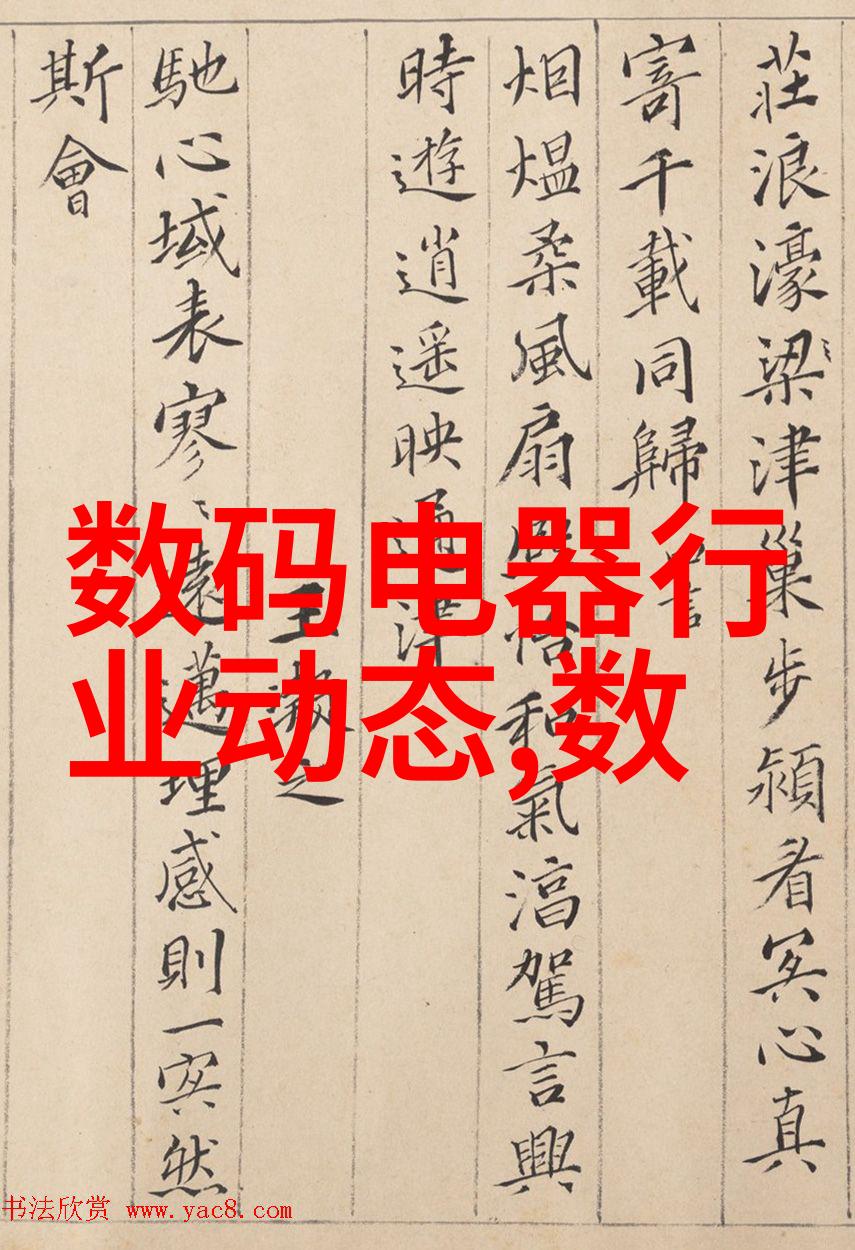 莊浪濠梁津巢步潁看冥心真
寄千載同歸
烟煴桑風扇 怡和氣淳駕言興
時遊逍遥映通津
王
之
馳心域表寥遠邁理感則一冥然
斯會
数码电器行
业动态,数
书法欣赏 www.yac8.com